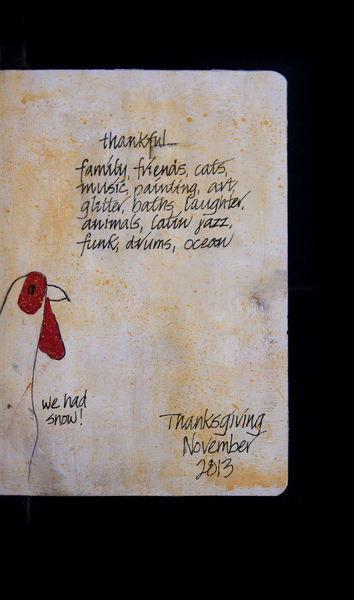 thankful...
family, friends, cats,
music, painting, art,
glitter, baths, laughter,
animals, latin jazz,
funk, drums, ocean
we had
snow!
Thanksgiving
November
2013